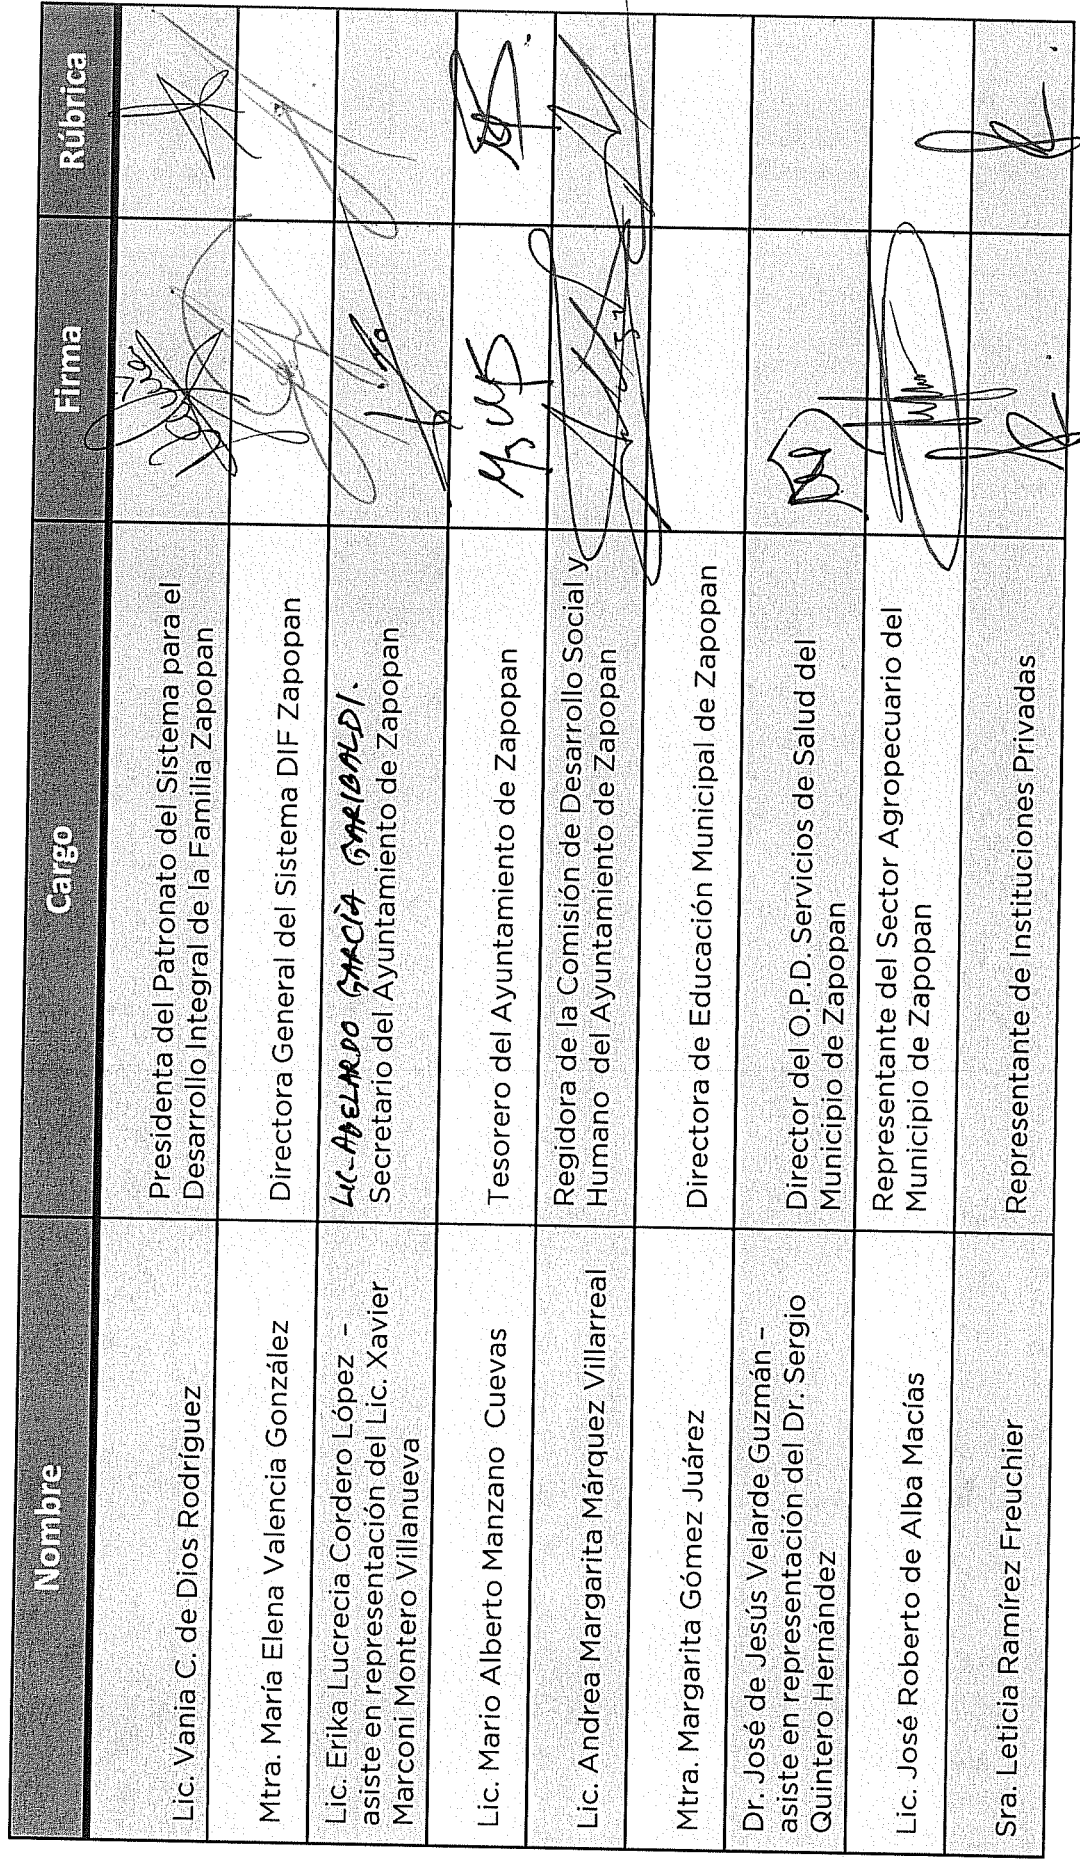 Nombre Cargo Firma Rúbrica
Lic. Vania C. de Dios Rodríguez
Presidenta del Patronato del Sistema para el
Desarrollo Integral de la Familia Zapopan
Mtra. María Elena Valencia González
Directora General del Sistema DIF Zapopan
Lic. Erika Lucrecia Cordero López –
asiste en representación del Lic. Xavier
Marconi Montero Villanueva
LIC. ABELARDO GARCÍA GARIBALDI.
Secretario del Ayuntamiento de Zapopan
Lic. Mario Alberto Manzano Cuevas
Tesorero del Ayuntamiento de Zapopan
Lic. Andrea Margarita Márquez Villarreal
Regidora de la Comisión de Desarrollo Social y
Humano del Ayuntamiento de Zapopan
Mtra. Margarita Gómez Juárez
Directora de Educación Municipal de Zapopan
Dr. José de Jesús Velarde Guzmán –
asiste en representación del Dr. Sergio
Quintero Hernández
Director del O.P.D. Servicios de Salud del
Municipio de Zapopan
Lic. José Roberto de Alba Macías
Representante del Sector Agropecuario del
Municipio de Zapopan
Sra. Leticia Ramírez Freuchier
Representante de Instituciones Privadas